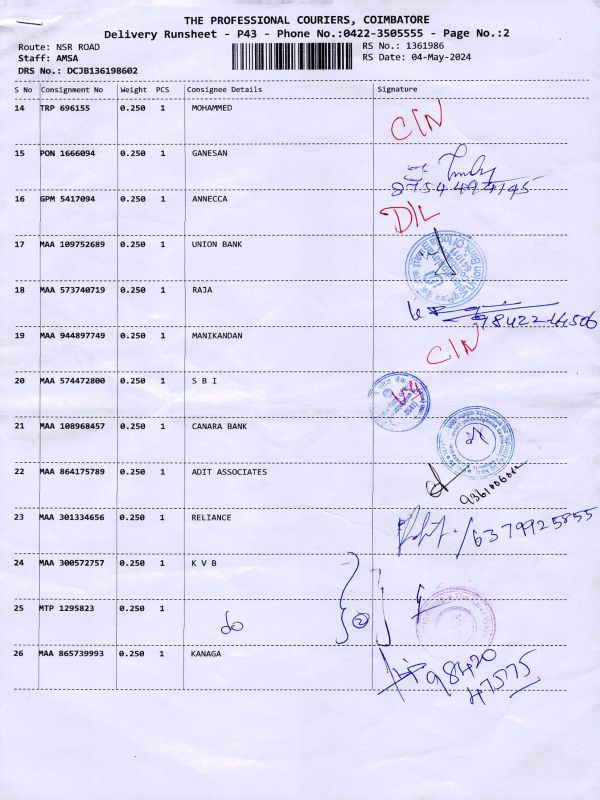 THE PROFESSIONAL COURIERS, COIMBATORE
Delivery Runsheet - P43 - Phone No.:0422-3505555 - Page No.:2
Route: NSR ROAD
RS No.: 1361986
Staff: AMSA
RS Date: 04-May-2024
DRS No.: DCJB136198602
S No Consignment No Weight PCS Consignee Details Signature
14 TRP 696155 0.250 1 MOHAMMED CIN
15 PON 1666094 0.250 1 GANESAN
8754494145
16 GPM 5417094 0.250 1 ANNECCA D/L
17 MAA 109752689 0.250 1 UNION BANK
18 MAA 573740719 0.250 1 RAJA
19 MAA 944897749 0.250 1 MANIKANDAN CIN
20 MAA 574472800 0.250 1 S B I
21 MAA 108968457 0.250 1 CANARA BANK
22 MAA 864175789 0.250 1 ADIT ASSOCIATES
23 MAA 301334656 0.250 1 RELIANCE 6379925855
24 MAA 300572757 0.250 1 K V B
25 MTP 1295823 0.250 1 do 2
26 MAA 865739993 0.250 1 KANAGA 98420
47575